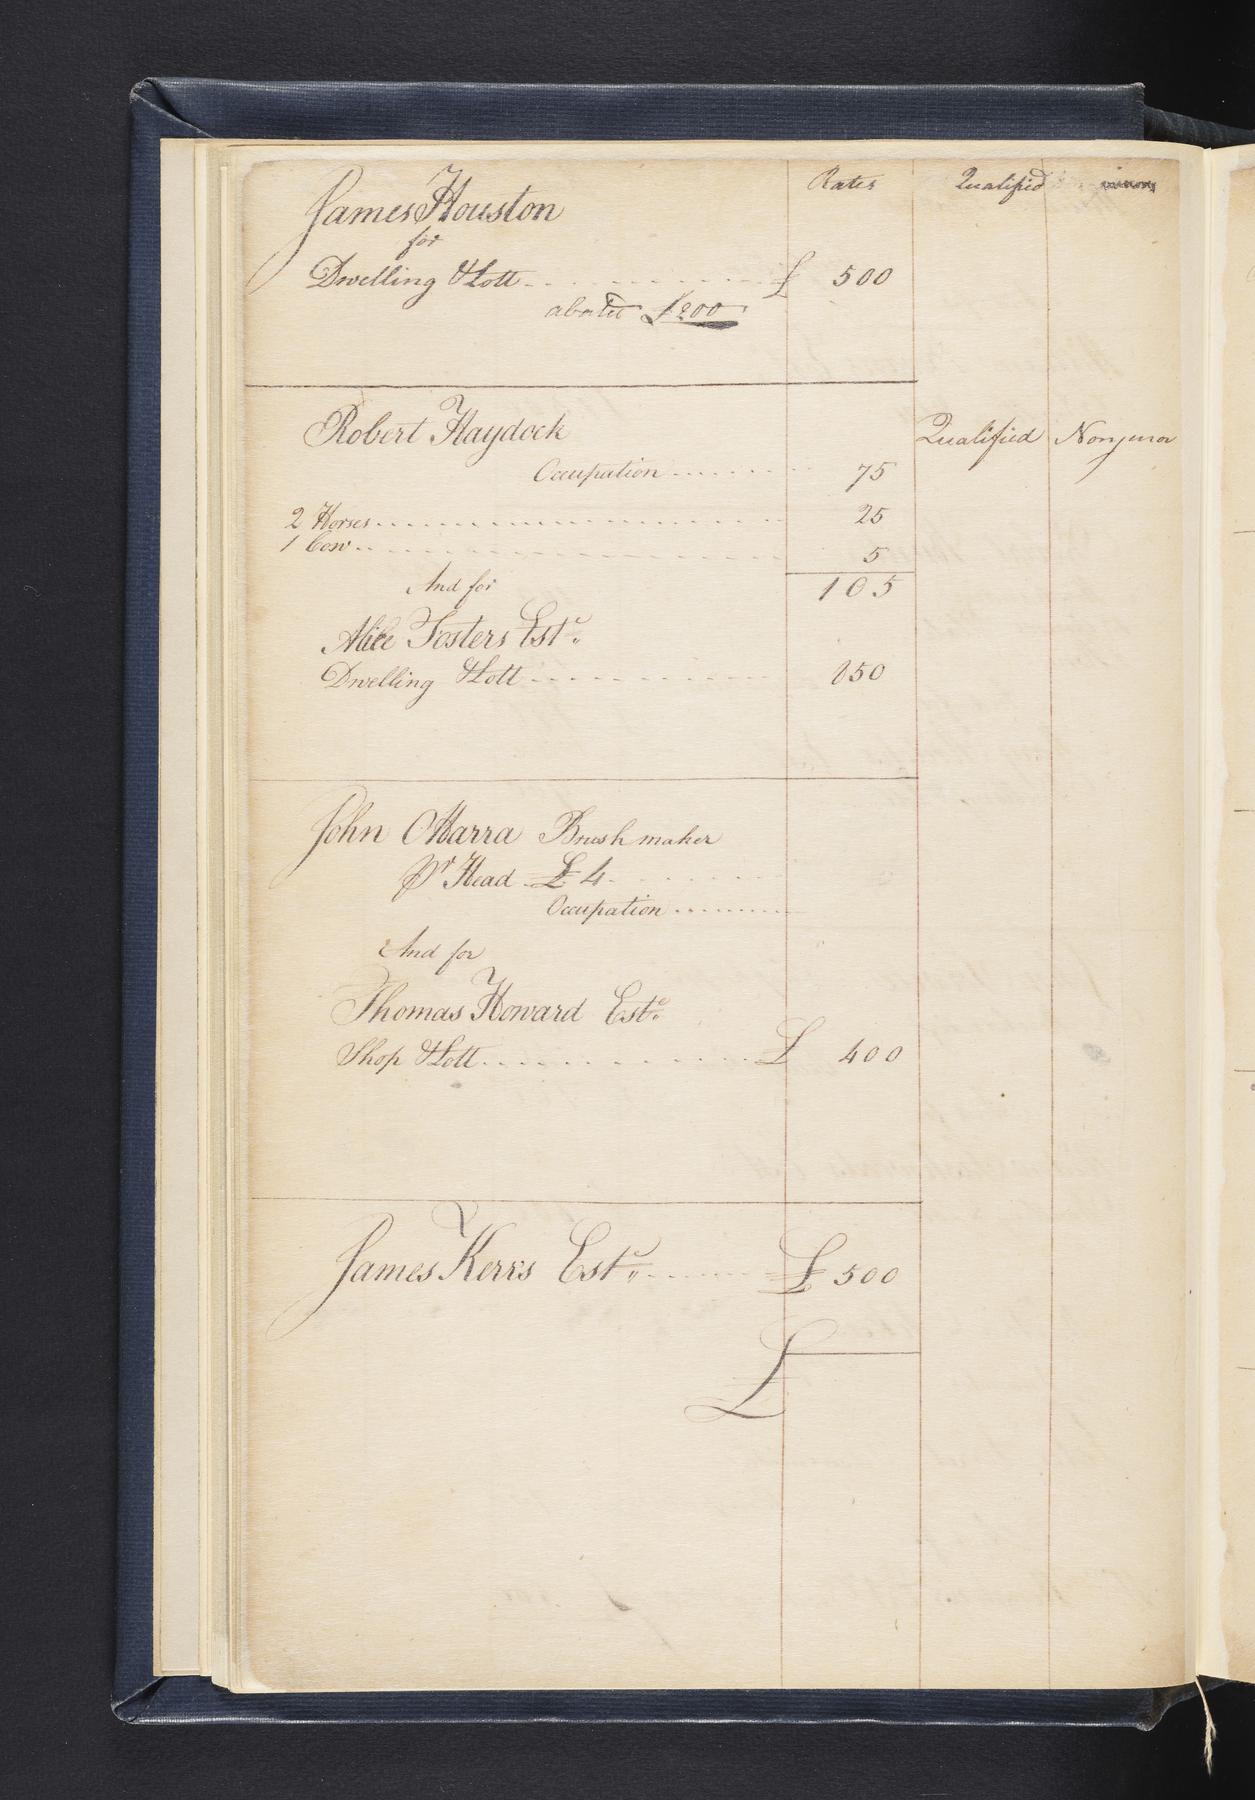 Rates Qualified
James Houston
for
Dwelling & Lott £ 500
abated £200
Robert Haydock Qualified Nonjuror
Occupation 75
2 Horses 25
1 Cow 5
105
And for
Alice Fosters Este
Dwelling & Lott 850
John OHarra Brush maker
Pr Head £4
Occupation
And for
Thomas Howard Este
Shop & Lott £ 400
James Kerrs Este £ 500
£